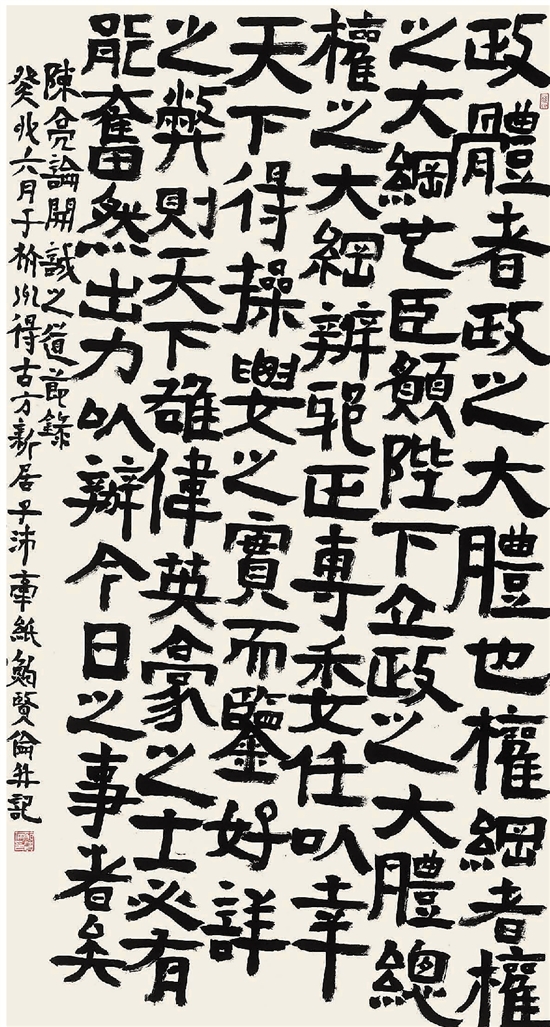 政體者政之大體也權綱者權
之大綱也臣願陛下立政之大體總
權之大綱辨邪正專委任以幸
天下得操要之實而鑒好詳
之弊則天下雄偉英豪之士必有
能奮然出力以辦今日之事者矣
陳亮論開誠之道節錄
癸卯六月于得古方新居子沛牽紙賢倫并記